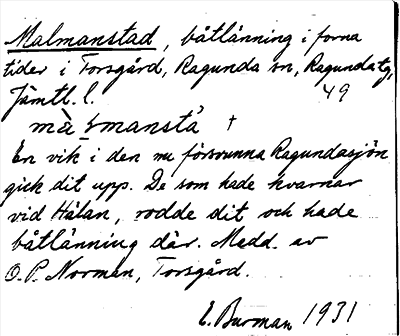 Malmanstad, båtlänning i forna
tider i Torsgård, Ragunda sn, Ragunda tg,
Jämtl. l. 49
En vik i den nu försvunna Ragundasjön
gick dit upp. De som hade kvarnar
vid Hålan, rodde dit och hade
båtlänning där. Medd. av
O.P. Norman, Torsgård.
E. Burman 1931